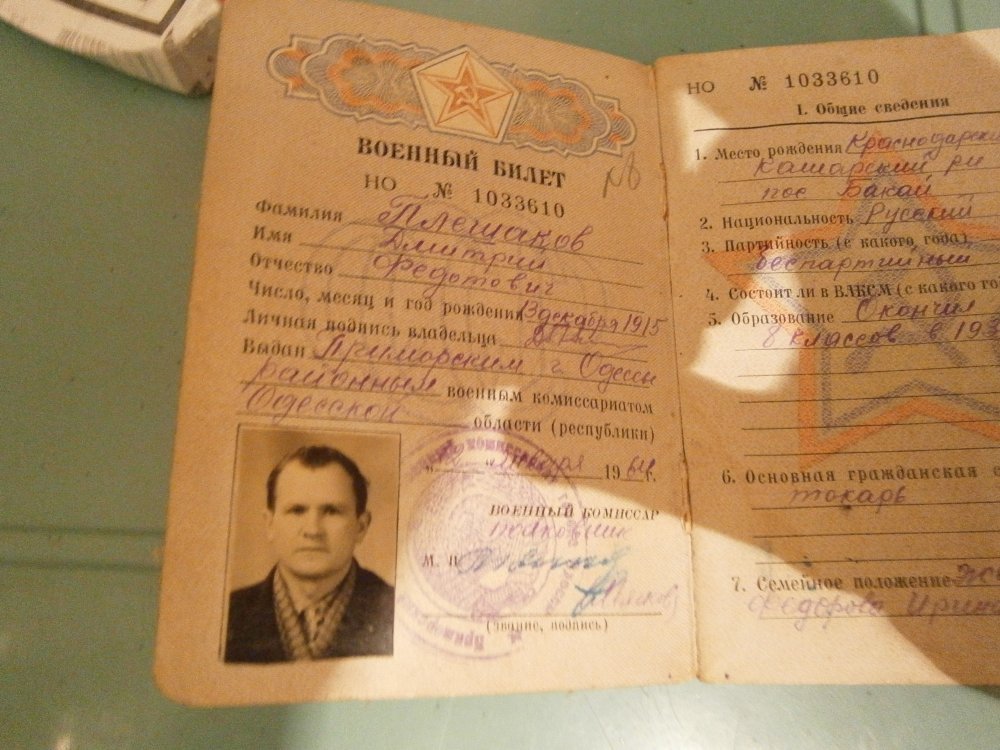 ВОЕННЫЙ БИЛЕТ
НО № 1033610
Фамилия Плешаков
Имя Дмитрий
Отчество Федотович
Число, месяц и год рождения 13 декабря 1915
Личная подпись владельца
Выдан Приморским г. Одессы
районным военным комиссариатом
Одесской области (республики)
января 1964 г.
ВОЕННЫЙ КОМИССАР
полковник
М. П.
(звание, подпись)
НО № 1033610
I. Общие сведения
1. Место рождения Краснодарский
Кашарский рн
пос Бакай
2. Национальность Русский
3. Партийность (с какого года)
беспартийный
4. Состоит ли в ВЛКСМ (с какого го
5. Образование Окончил
8 классов в 19
6. Основная гражданская с
токарь
7. Семейное положение
Федорова Ирин